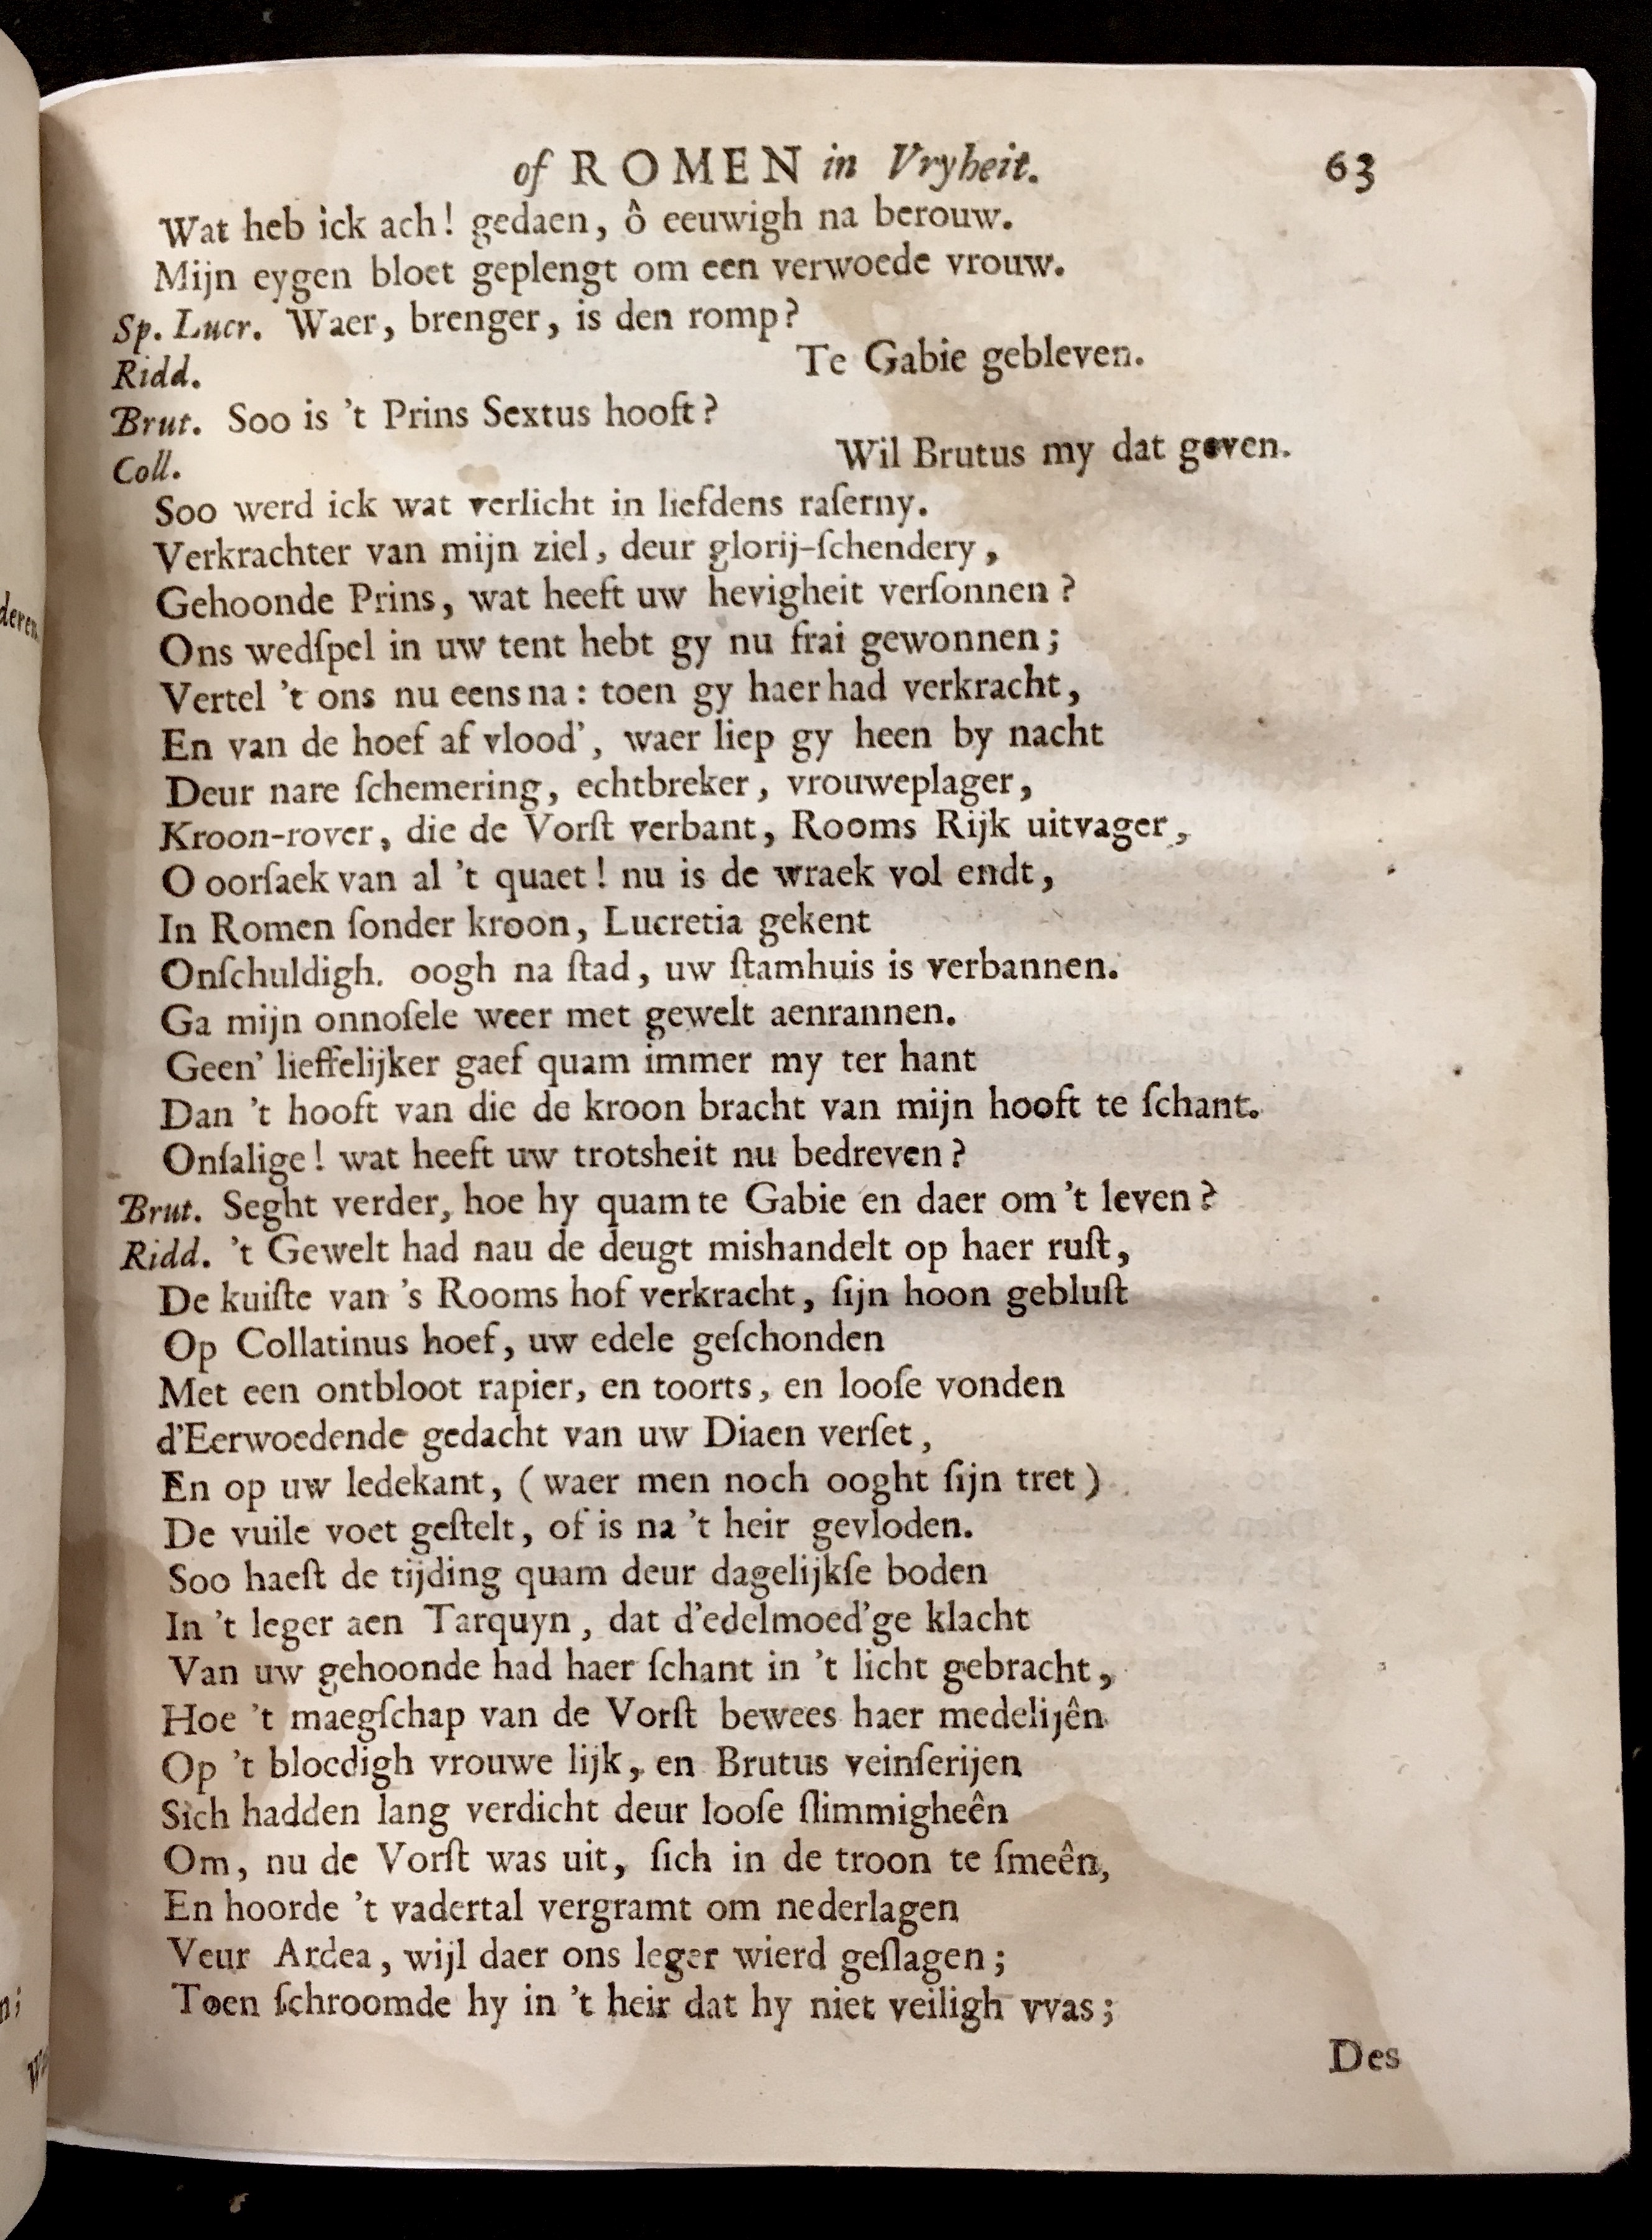 of ROMEN in Vryheit. 63
Wat heb ick ach! gedaen, ô eeuwigh na berouw.
Mijn eygen bloet geplengt om een verwoede vrouw.
Sp. Lucr. Waer, brenger, is den romp?
Ridd. Te Gabie gebleven.
Brut. Soo is 't Prins Sextus hooft?
Coll. Wil Brutus my dat geven.
Soo werd ick wat verlicht in liefdens raſerny.
Verkrachter van mijn ziel, deur glorij-ſchendery,
Gehoonde Prins, wat heeft uw hevigheit verſonnen?
Ons wedſpel in uw tent hebt gy nu frai gewonnen;
Vertel 't ons nu eens na: toen gy haer had verkracht,
En van de hoef af vlood', waer liep gy heen by nacht
Deur nare ſchemering, echtbreker, vrouweplager,
Kroon-rover, die de Vorſt verbant, Rooms Rijk uitvager,
O oorſaek van al 't quaet! nu is de wraek vol endt,
In Romen ſonder kroon, Lucretia gekent
Onſchuldigh. oogh na ſtad, uw ſtamhuis is verbannen.
Ga mijn onnoſele weer met gewelt aenrannen.
Geen' lieffelijker gaef quam immer my ter hant
Dan 't hooft van die de kroon bracht van mijn hooft te ſchant.
Onſalige! wat heeft uw trotsheit nu bedreven?
Brut. Seght verder, hoe hy quam te Gabie en daer om 't leven?
Ridd. 't Gewelt had nau de deugt mishandelt op haer ruſt,
De kuiſte van 's Rooms hof verkracht, ſijn hoon gebluſt
Op Collatinus hoef, uw edele geſchonden
Met een ontbloot rapier, en toorts, en looſe vonden
d'Eerwoedende gedacht van uw Diaen verſet,
En op uw ledekant, (waer men noch ooght ſijn tret)
De vuile voet geſtelt, of is na 't heir gevloden.
Soo haeſt de tijding quam deur dagelijkſe boden
In 't leger aen Tarquyn, dat d'edelmoed'ge klacht
Van uw gehoonde had haer ſchant in 't licht gebracht,
Hoe 't maegſchap van de Vorſt bewees haer medelijên
Op 't bloedigh vrouwe lijk, en Brutus veinſerijen
Sich hadden lang verdicht deur looſe ſlimmigheên
Om, nu de Vorſt was uit, ſich in de troon te ſmeên,
En hoorde 't vadertal vergramt om nederlagen
Veur Ardea, wijl daer ons leger wierd geſlagen;
Toen ſchroomde hy in 't heir dat hy niet veiligh vvas;
Des